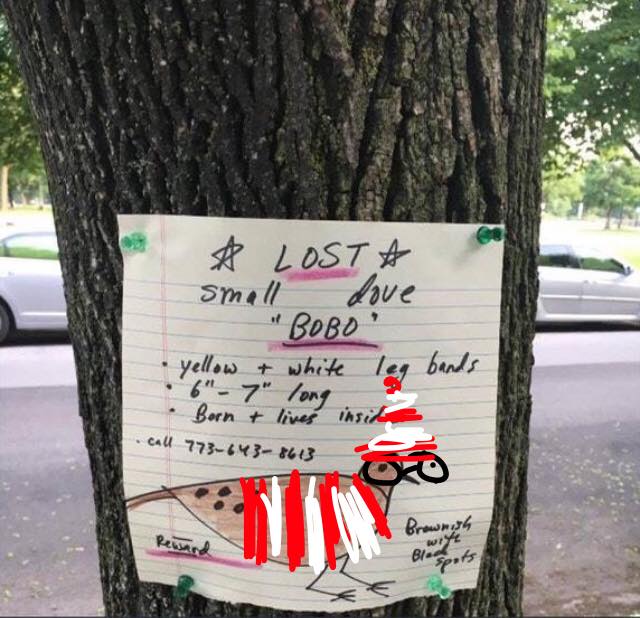 ☆ LOST ☆
small dove
"BOBO"
• yellow + white leg bands
• 6" - 7" long
• Born + lives insid
• call 773-643-8613
Reward
Brownish
wife
Black
spots